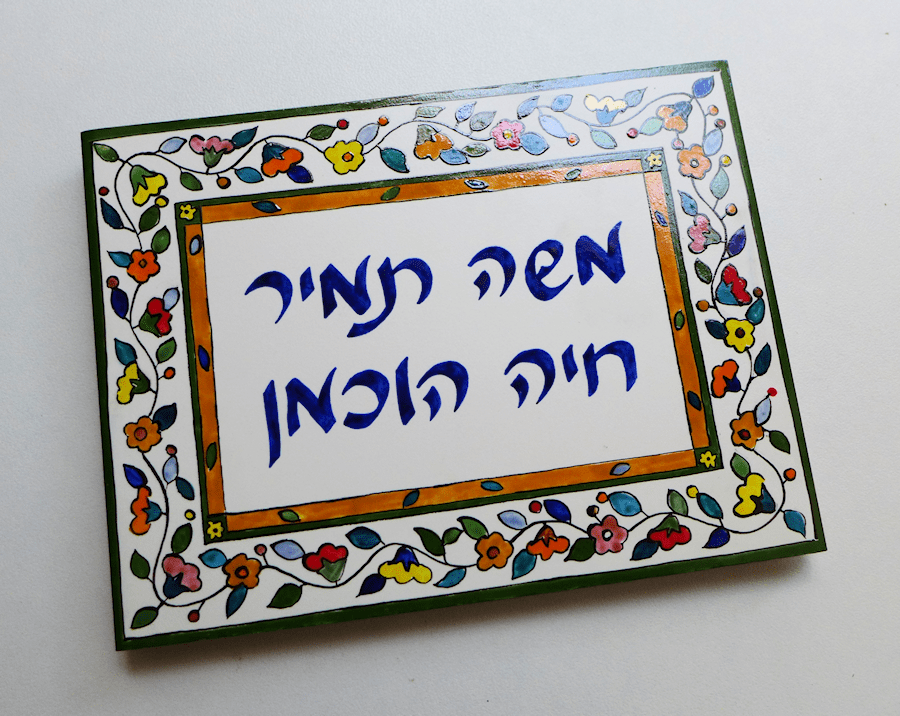 משה תמיר
חיה הוכמן